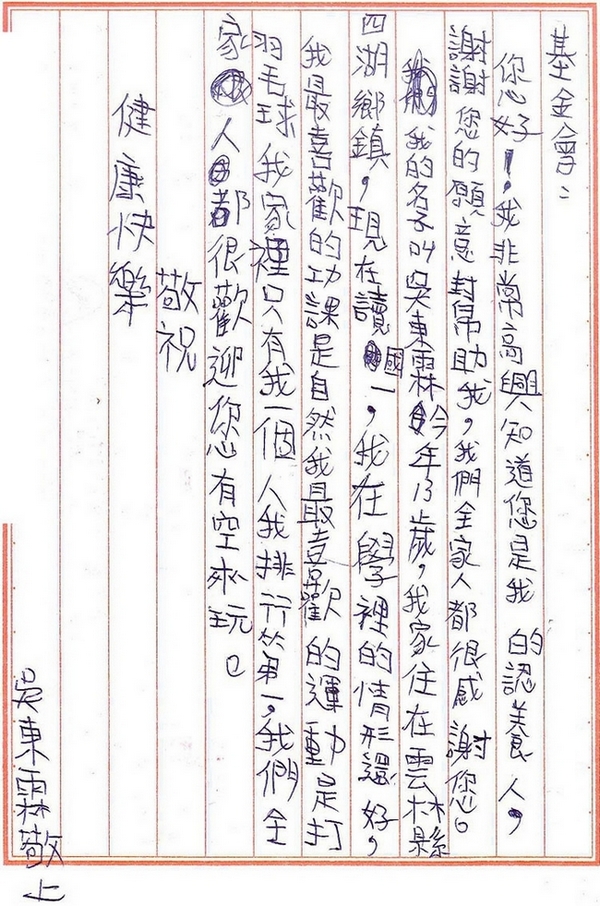 基金會：
您好！，我非常高興知道您是我的認養人，
謝謝您的願意封幫助我，我們全家人都很感謝您。
我的名子叫吳東霖今年13歲，我家住在雲林縣
四湖鄉鎮，現在讀國一，我在學裡的情形還好，
我最喜歡的功課是自然我最喜歡的運動是打
羽毛球我家裡只有我一個人我排行苐一，我們全
家人都很歡迎您有空來玩。
敬祝
健康快樂
吳東霖敬上